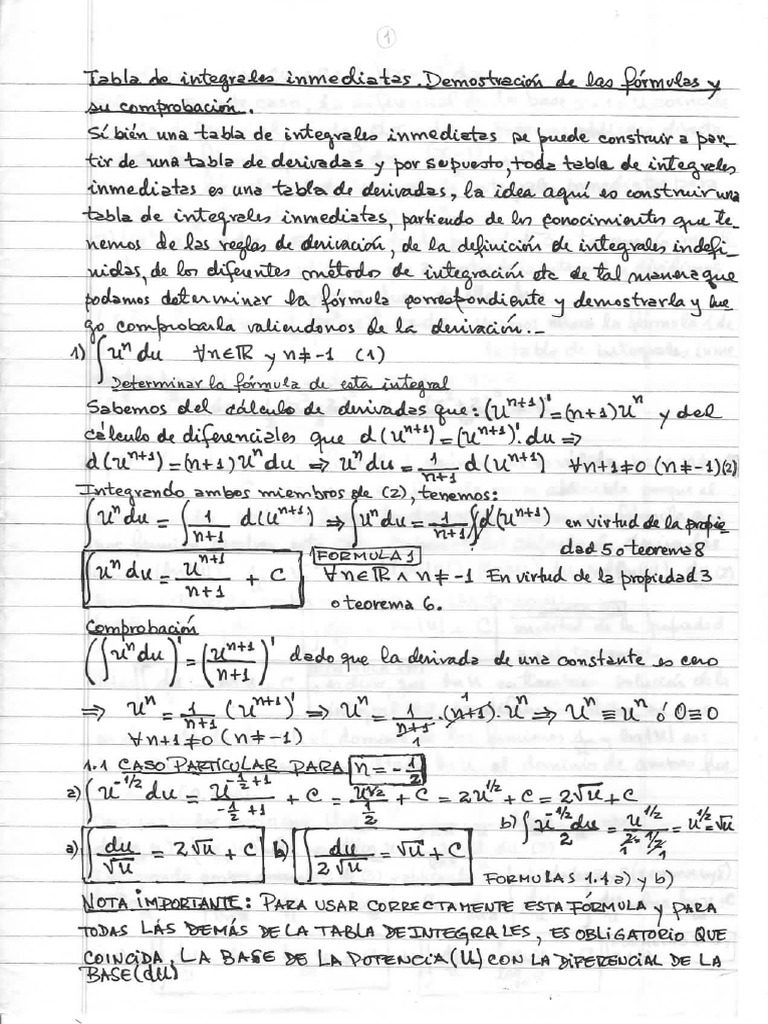 1
Tabla de integrales inmediatas. Demostración de las fórmulas y
su comprobación.
Sí bién una tabla de integrales inmediatas se puede construir a par-
tir de una tabla de derivadas y por supuesto, toda tabla de integrales
inmediatas es una tabla de derivadas, la idea aquí es construir una
tabla de integrales inmediatas, partiendo de los conocimientos que te-
nemos de las reglas de derivación, de la definición de integrales indefi-
nidas, de los diferentes métodos de integración etc de tal manera que
podamos determinar la fórmula correspondiente y demostrarla y lue-
go comprobarla valiendonos de la derivación.-
1) ∫uⁿ du ∀n∈ℝ y n≠-1 (1)
Determinar la fórmula de esta integral
Sabemos del cálculo de derivadas que: (uⁿ⁺¹)' = (n+1)uⁿ y del
cálculo de diferenciales que d(uⁿ⁺¹) = (uⁿ⁺¹)'. du ⇒
d(uⁿ⁺¹) = (n+1)uⁿdu ⇒ uⁿdu = 1/(n+1) d(uⁿ⁺¹) ∀n+1≠0 (n≠-1)(2)
Integrando ambos miembros de (2), tenemos:
∫uⁿdu = ∫ 1/(n+1) d(uⁿ⁺¹) ⇒ ∫uⁿdu = 1/(n+1) ∫d(uⁿ⁺¹) en virtud de la propie
dad 5 o teorema 8
∫uⁿdu = uⁿ⁺¹/(n+1) + C FORMULA 1 ∀n∈ℝ ∧ n≠-1 En virtud de la propiedad 3
o teorema 6.
Comprobación
(∫uⁿdu)' = (uⁿ⁺¹/(n+1))' dado que la derivada de una constante es cero
⇒ uⁿ = 1/(n+1) (uⁿ⁺¹)' ⇒ uⁿ = 1/(n+1) . (n+1). uⁿ ⇒ uⁿ ≡ uⁿ ó 0≡0
∀n+1≠0 (n≠-1)
1.1 CASO PARTICULAR PARA n=-1/2
a) ∫u^(-1/2) du = u^(-1/2+1)/(-1/2+1) + C = u^(1/2)/(1/2) + C = 2u^(1/2) + C = 2√u + C
b) ∫ u^(-1/2)/2 du = u^(1/2)/(2·1/2) = u^(1/2) = √u
a) ∫ du/√u = 2√u + C b) ∫ du/(2√u) = √u + C FORMULAS 1.1 a) y b)
NOTA IMPORTANTE: PARA USAR CORRECTAMENTE ESTA FÓRMULA y PARA
TODAS LAS DEMÁS DE LA TABLA DE INTEGRALES, ES OBLIGATORIO QUE
COINCIDA, LA BASE DE LA POTENCIA (U) CON LA DIFERENCIAL DE LA
BASE (dU)